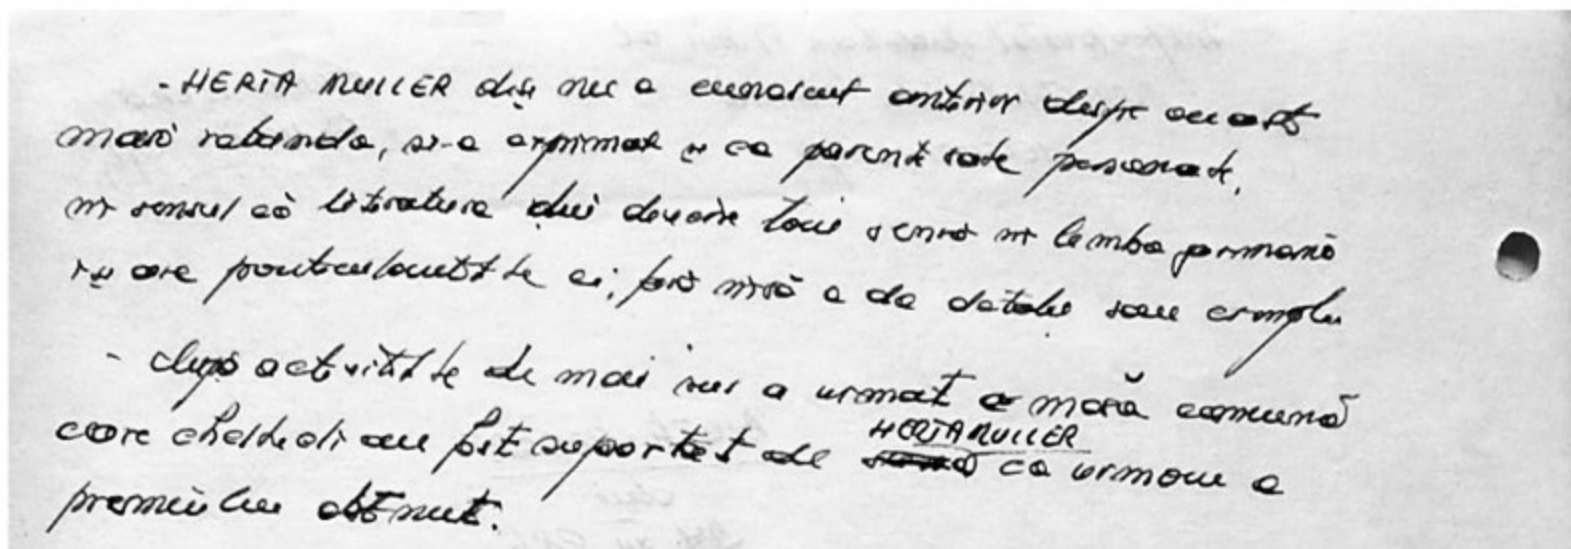 - HERTA MULLER deși nu a cunoscut anterior despre această
masă rotundă, și-a exprimat și ea parerile sale personale,
în sensul că literatura din țară scrisă în limba germană
își are particularitățile ei, fără însă a da detalii sau exemple
- după activitățile de mai sus a urmat o masă comună
care cheltueli au fost suportat de HERTA MULLER ca urmare a
premiului obținut.